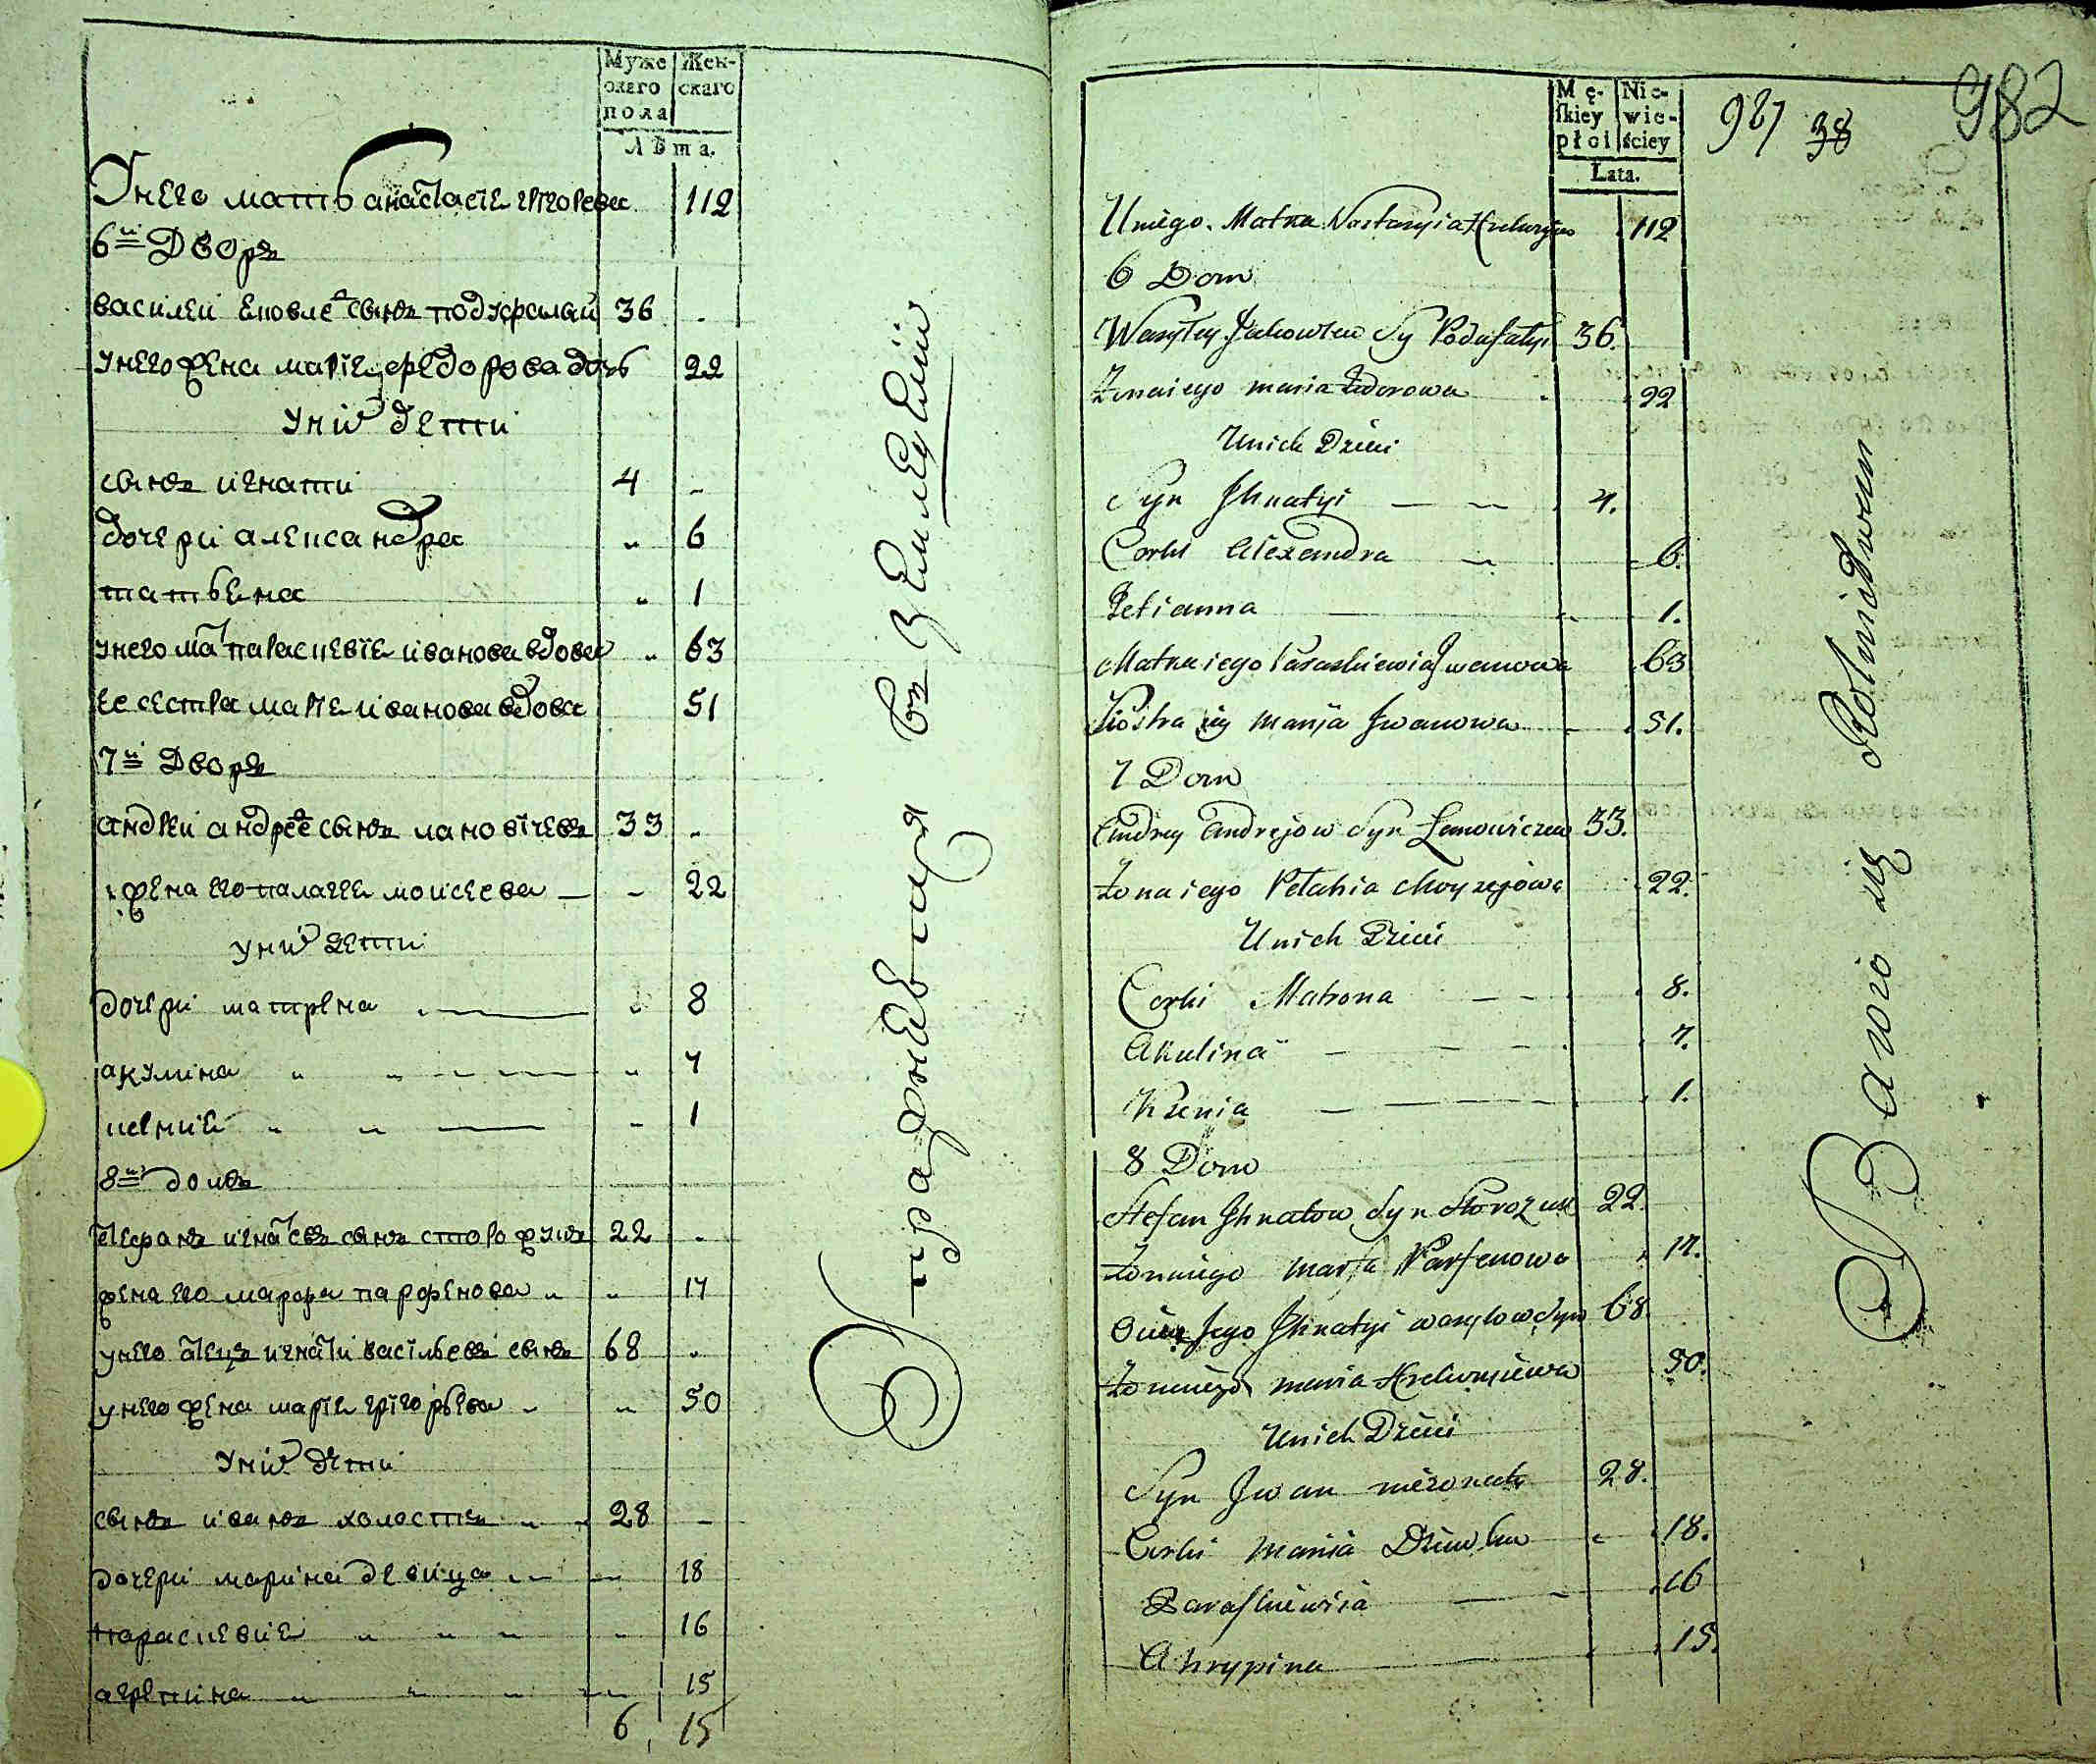 Муже
скаго
пола
Жен-
скаго
Лѣта.
Унего мать анастасіе 112
6й Дворъ
василеи сынъ 36
унего жена маріе федорова дочь 22
уних дети
сынъ игнати 4
дочери александра 6
татьена 1
унего мать параскевіе иванова вдова 63
ее сестра маріе иванова вдова 51
7й Дворъ
андреи андрее сынъ лановичевъ 33
жена его палагее моисеева 22
уних дети
дочери матрена 8
акулина 4
ксение 1
8й домъ
стефанъ игнатевъ сынъ сторожукъ 22
жена его марфа парфенова 17
унего отецъ игнати васильевъ сынъ 68
унего жена маріе григорьева 50
Уних дети
сынъ иванъ холостъ 28
дочери марина девица 18
параскевие 16
агрепина 15
6 15
Упражневтця въ земледелии
Mę-
skiey
płci
Nie-
wie-
ściey
Łata.
981 38 982
Uniego Matka Nastasyia 112
6 Dom
Wasyley Jakowlew Sy 36.
Żona iego maria Fedorowa 22
Unich Dzieci
Syn Jhnatyi 4.
Corki Alexandra 6.
Tetianna 1.
Matka iego Paraskiewia Jwanowa 63
Siostra iey Marija Jwanowa 51.
7 Dom
Andrey Andrejow Syn Lanowiczew 33.
Żona iego Pelahia Moyzejowa 22.
Unich Dzieci
Corki Matrona 8.
Akulina 4.
Ksenia 1.
8 Dom
Stefan Jhnatow Syn Storozuk 22.
Żona iego Marfa Parfenowa 17.
Ociec Jego Jhnatyi wasylow Syn 68
Żona iego maria 50.
Unich Dzieci
Syn Jwan nieżonaty 28.
Corki Maria Dziewka 18.
Paraskiewia 16
Ahrypina 15.
Bawio się Rolnictwem